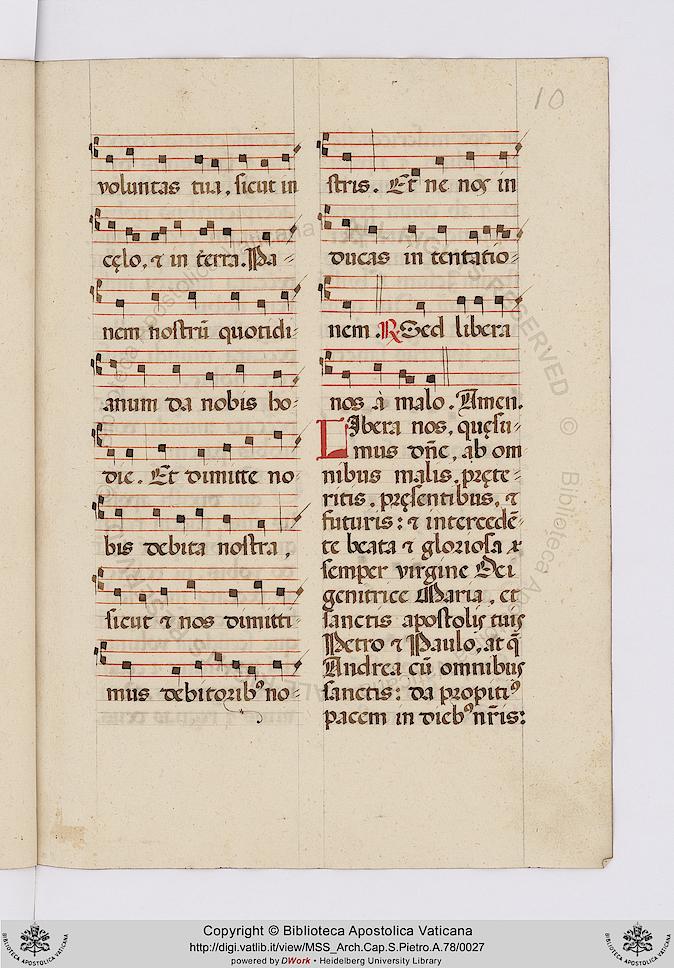 10
voluntas tua, sicut in
cęlo, ⁊ in terra. Pa-
nem nostrũ quotidi-
anum da nobis ho-
die. Et dimitte no-
bis debita nostra,
sicut ⁊ nos dimitti-
mus debitoribꝰ no-
stris. Et ne nos in
ducas in tentatio-
nem. ℟. Sed libera
nos à malo. Amen.
Libera nos, quęsu-
mus dñe, ab om
nibus malis, pręte-
ritis, pręsentibus, ⁊
futuris: ⁊ intercedẽ-
te beata ⁊ gloriosa
semper virgine Dei
genitrice Maria, et
sanctis apostolis tuis
Petro ⁊ Paulo, at q̃
Andrea cũ omnibus
sanctis: da propitiꝰ
pacem in diebꝰ nr̃is:
ALL RIGHTS RESERVED © Biblioteca Apostolica Vaticana
Copyright © Biblioteca Apostolica Vaticana
http://digi.vatlib.it/view/MSS_Arch.Cap.S.Pietro.A.78/0027
powered by DWork • Heidelberg University Library
BIBLIOTECA APOSTOLICA VATICANA
BIBLIOTECA APOSTOLICA VATICANA